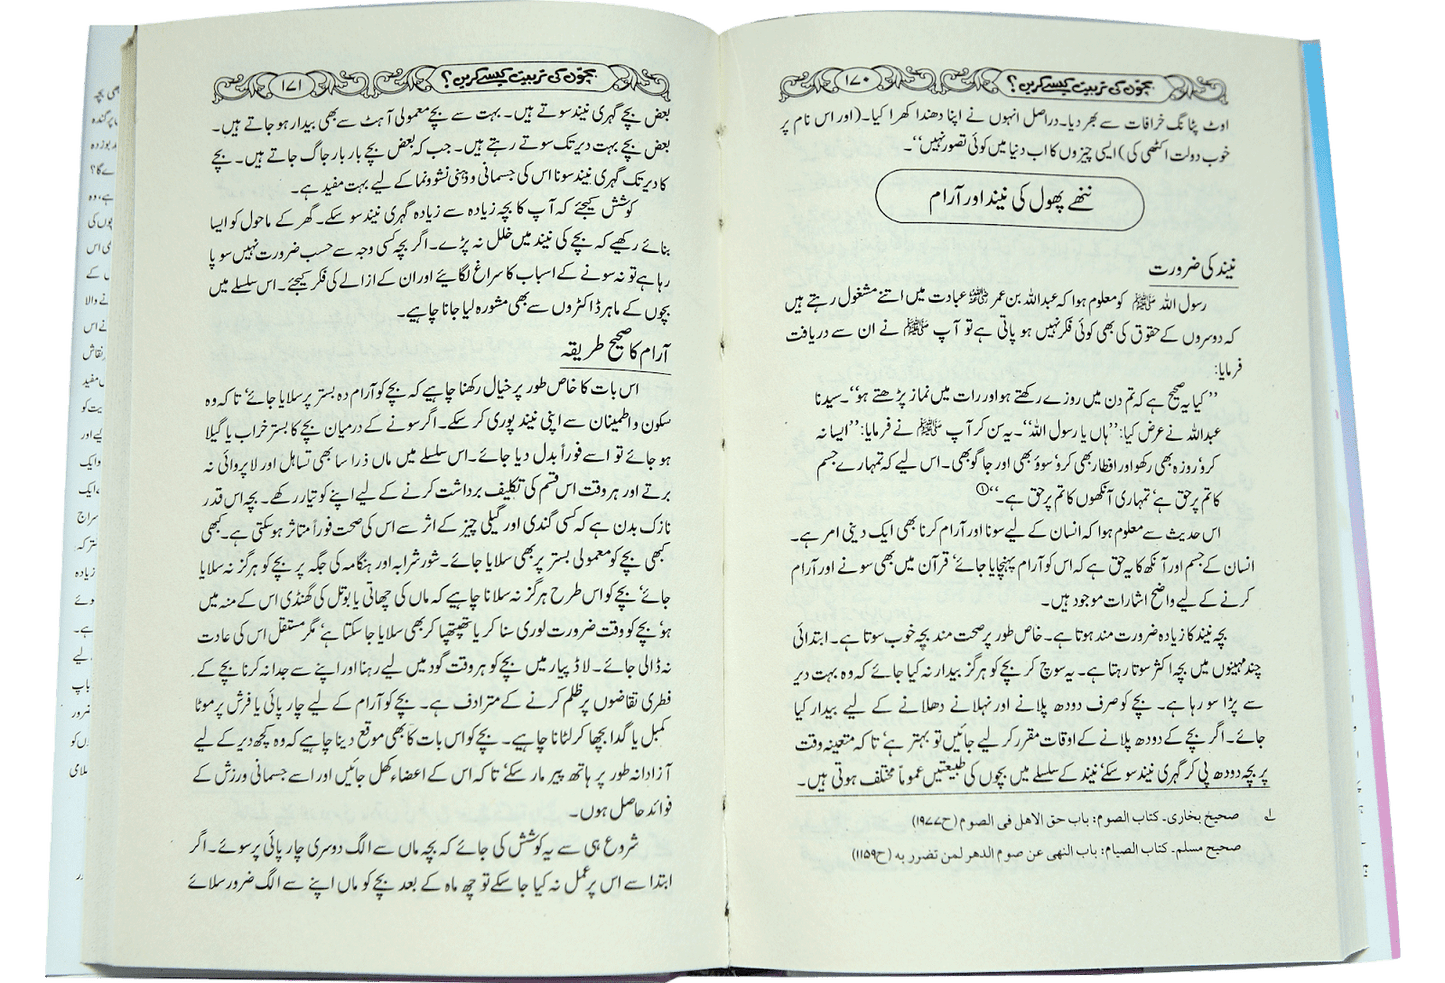 بچّوں کی تربیت کیسے کریں؟
۱۷۰
اوٹ پٹانگ خرافات سے بھر دیا۔ دراصل انہوں نے اپنا دھندا کھرا کیا۔ (اور اس نام پر
خوب دولت اکٹھی کی) ایسی چیزوں کا اب دنیا میں کوئی تصور نہیں‘‘۔
ننھے پھول کی نیند اور آرام
نیند کی ضرورت
رسول اللہ ﷺ کو معلوم ہوا کہ عبداللہ بن عمر عبادت میں اتنے مشغول رہتے ہیں
کہ دوسروں کے حقوق کی بھی کوئی فکر نہیں ہو پاتی ہے تو آپ ﷺ نے ان سے دریافت
فرمایا:
’’کیا یہ صحیح ہے کہ تم دن میں روزے رکھتے ہو اور رات میں نماز پڑھتے ہو‘‘۔ سیدنا
عبداللہ نے عرض کیا: ’’ہاں یا رسول اللہ‘‘۔ یہ سن کر آپ ﷺ نے فرمایا: ’’ایسا نہ
کرو‘ روزہ بھی رکھو اور افطار بھی کرو‘ سوؤ بھی اور جاگو بھی۔ اس لیے کہ تمہارے جسم
کا تم پر حق ہے‘ تمہاری آنکھوں کا تم پر حق ہے۔‘‘ ①
اس حدیث سے معلوم ہوا کہ انسان کے لیے سونا اور آرام کرنا بھی ایک دینی امر ہے۔
انسان کے جسم اور آنکھ کا یہ حق ہے کہ اس کو آرام پہنچایا جائے‘ قرآن میں بھی سونے اور آرام
کرنے کے لیے واضح اشارات موجود ہیں۔
بچہ نیند کا زیادہ ضرورت مند ہوتا ہے۔ خاص طور پر صحت مند بچہ خوب سوتا ہے۔ ابتدائی
چند مہینوں میں بچہ اکثر سوتا رہتا ہے۔ یہ سوچ کر بچے کو ہرگز بیدار نہ کیا جائے کہ وہ بہت دیر
سے پڑا سو رہا ہے۔ بچے کو صرف دودھ پلانے اور نہلانے دھلانے کے لیے بیدار کیا
جائے۔ اگر بچے کے دودھ پلانے کے اوقات مقرر کر لیے جائیں تو بہتر ہے‘ تاکہ متعینہ وقت
پر بچہ دودھ پی کر گہری نیند سو سکے‘ نیند کے سلسلے میں بچوں کی طبیعتیں عموماً مختلف ہوتی ہیں۔
۱؎ صحیح بخاری۔ کتاب الصوم: باب حق الاهل فی الصوم (ح۱۹۷۷)
صحیح مسلم۔ کتاب الصیام: باب النهی عن صوم الدهر لمن تضرر به (ح۱۱۵۹)
بچّوں کی تربیت کیسے کریں؟
۱۷۱
بعض بچے گہری نیند سوتے ہیں۔ بہت سے بچے معمولی آہٹ سے بھی بیدار ہو جاتے ہیں۔
بعض بچے بہت دیر تک سوتے رہتے ہیں۔ جب کہ بعض بچے بار بار جاگ جاتے ہیں۔ بچے
کا دیر تک گہری نیند سونا اس کی جسمانی و ذہنی نشوونما کے لیے بہت مفید ہے۔
کوشش کیجئے کہ آپ کا بچہ زیادہ سے زیادہ گہری نیند سو سکے۔ گھر کے ماحول کو ایسا
بنائے رکھیے کہ بچے کی نیند میں خلل نہ پڑے۔ اگر بچہ کسی وجہ سے حسب ضرورت نہیں سو پا
رہا ہے تو نہ سونے کے اسباب کا سراغ لگائیے اور ان کے ازالے کی فکر کیجئے۔ اس سلسلے میں
بچوں کے ماہر ڈاکٹروں سے بھی مشورہ لیا جانا چاہیے۔
آرام کا صحیح طریقہ
اس بات کا خاص طور پر خیال رکھنا چاہیے کہ بچے کو آرام دہ بستر پر سلایا جائے‘ تا کہ وہ
سکون و اطمینان سے اپنی نیند پوری کر سکے۔ اگر سونے کے درمیان بچے کا بستر خراب یا گیلا
ہو جائے تو اسے فوراً بدل دیا جائے۔ اس سلسلے میں ماں ذرا سا بھی تساہل اور لاپروائی نہ
برتے اور ہر وقت اس قسم کی تکلیف برداشت کرنے کے لیے اپنے کو تیار رکھے۔ بچہ اس قدر
نازک بدن ہے کہ کسی گندی اور گیلی چیز کے اثر سے اس کی صحت فوراً متاثر ہو سکتی ہے۔ کبھی
کبھی بچے کو معمولی بستر پر بھی سلایا جائے۔ شور شرابہ اور ہنگامہ کی جگہ پر بچے کو ہرگز نہ سلایا
جائے‘ بچے کو اس طرح ہرگز نہ سلانا چاہیے کہ ماں کی چھاتی یا بوتل کی گھنڈی اس کے منہ میں
ہو‘ بچے کو وقت ضرورت لوری سنا کر یا تھپتھپا کر بھی سلایا جا سکتا ہے‘ مگر مستقل اس کی عادت
نہ ڈالی جائے۔ لاڈ پیار میں بچے کو ہر وقت گود میں لیے رہنا اور اپنے سے جدا نہ کرنا بچے کے
فطری تقاضوں پر ظلم کرنے کے مترادف ہے۔ بچے کو آرام کے لیے چارپائی یا فرش پر موٹا
کمبل یا گدا بچھا کر لٹانا چاہیے۔ بچے کو اس بات کا بھی موقع دینا چاہیے کہ وہ کچھ دیر کے لیے
آزادانہ طور پر ہاتھ پیر مار سکے‘ تا کہ اس کے اعضاء کھل جائیں اور اسے جسمانی ورزش کے
فوائد حاصل ہوں۔
شروع ہی سے یہ کوشش کی جائے کہ بچہ ماں سے الگ دوسری چارپائی پر سوئے۔ اگر
ابتدا سے اس پر عمل نہ کیا جا سکے تو چھ ماہ کے بعد بچے کو ماں اپنے سے الگ ضرور سلائے